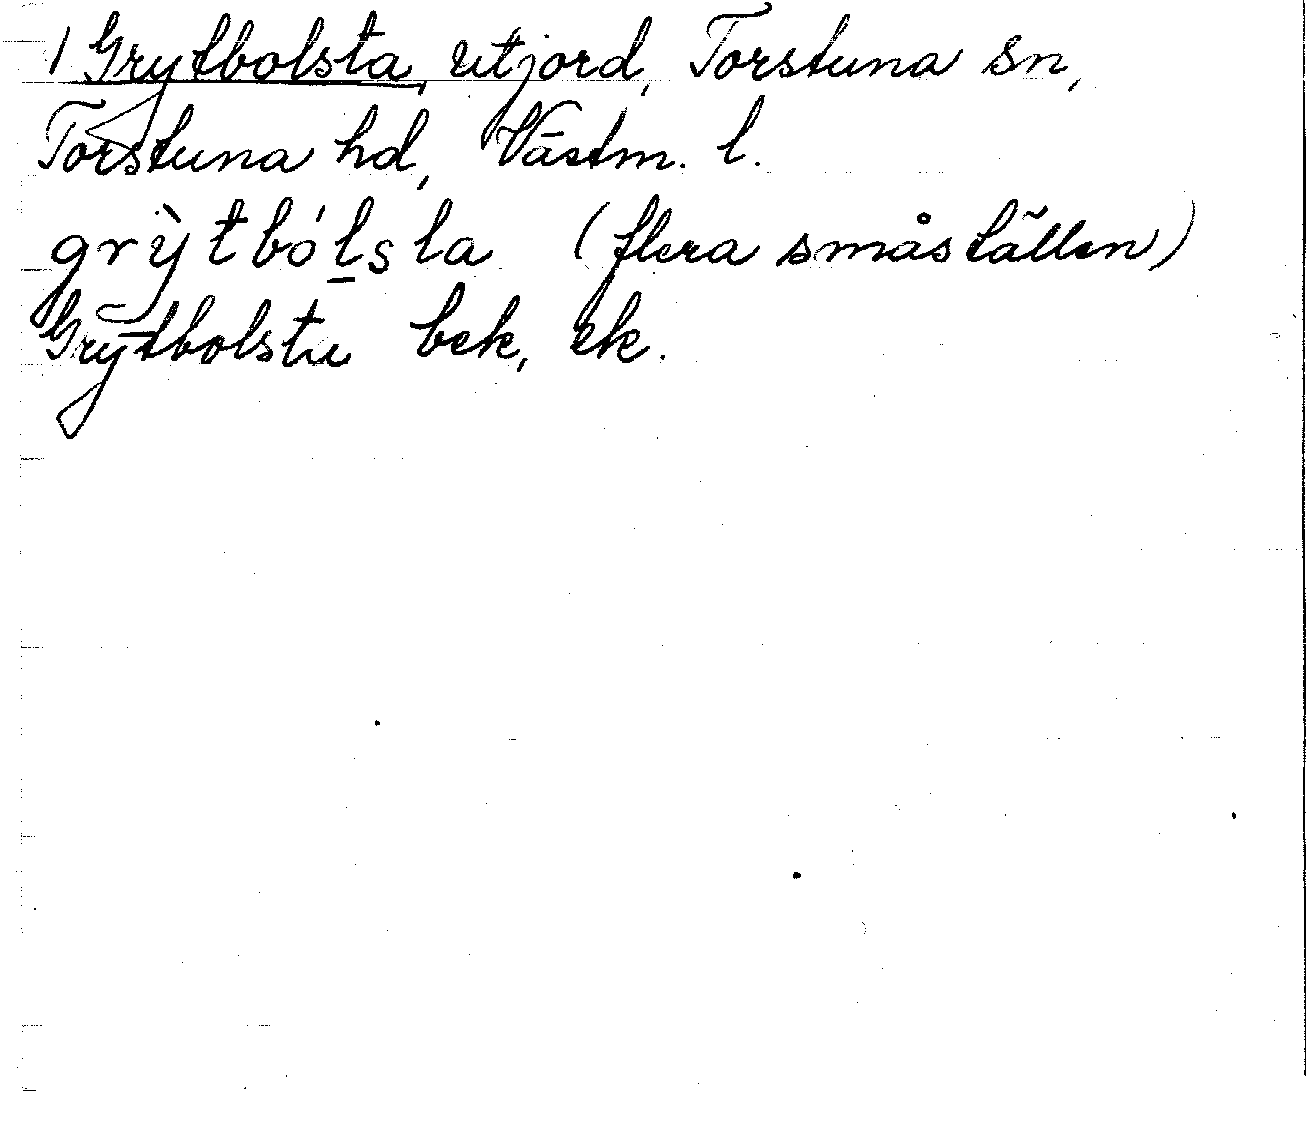 1 Grytbolsta, utjord, Torstuna sn,
Torstuna hd, Västm. l.
grỳtbólsta (flera småställen)
Grytbolstu bek, ek.